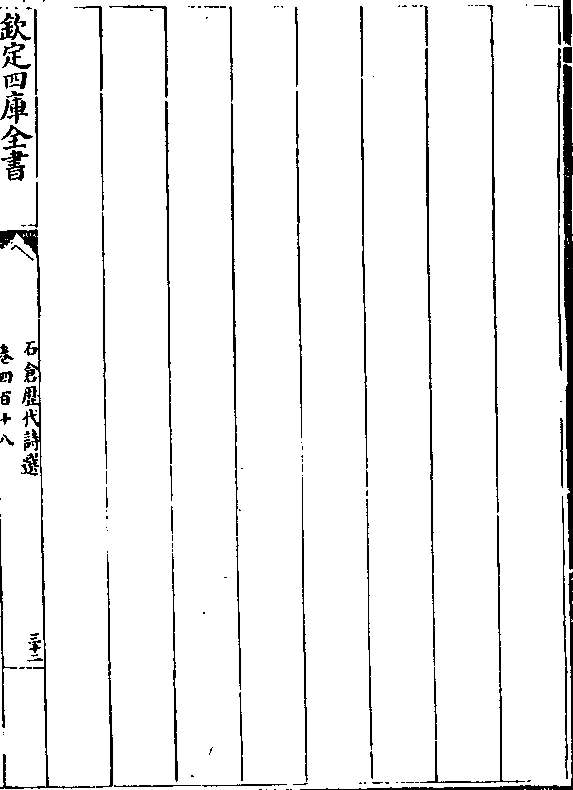 欽定四庫全書
石倉歷代詩選
卷四百十八
三十二